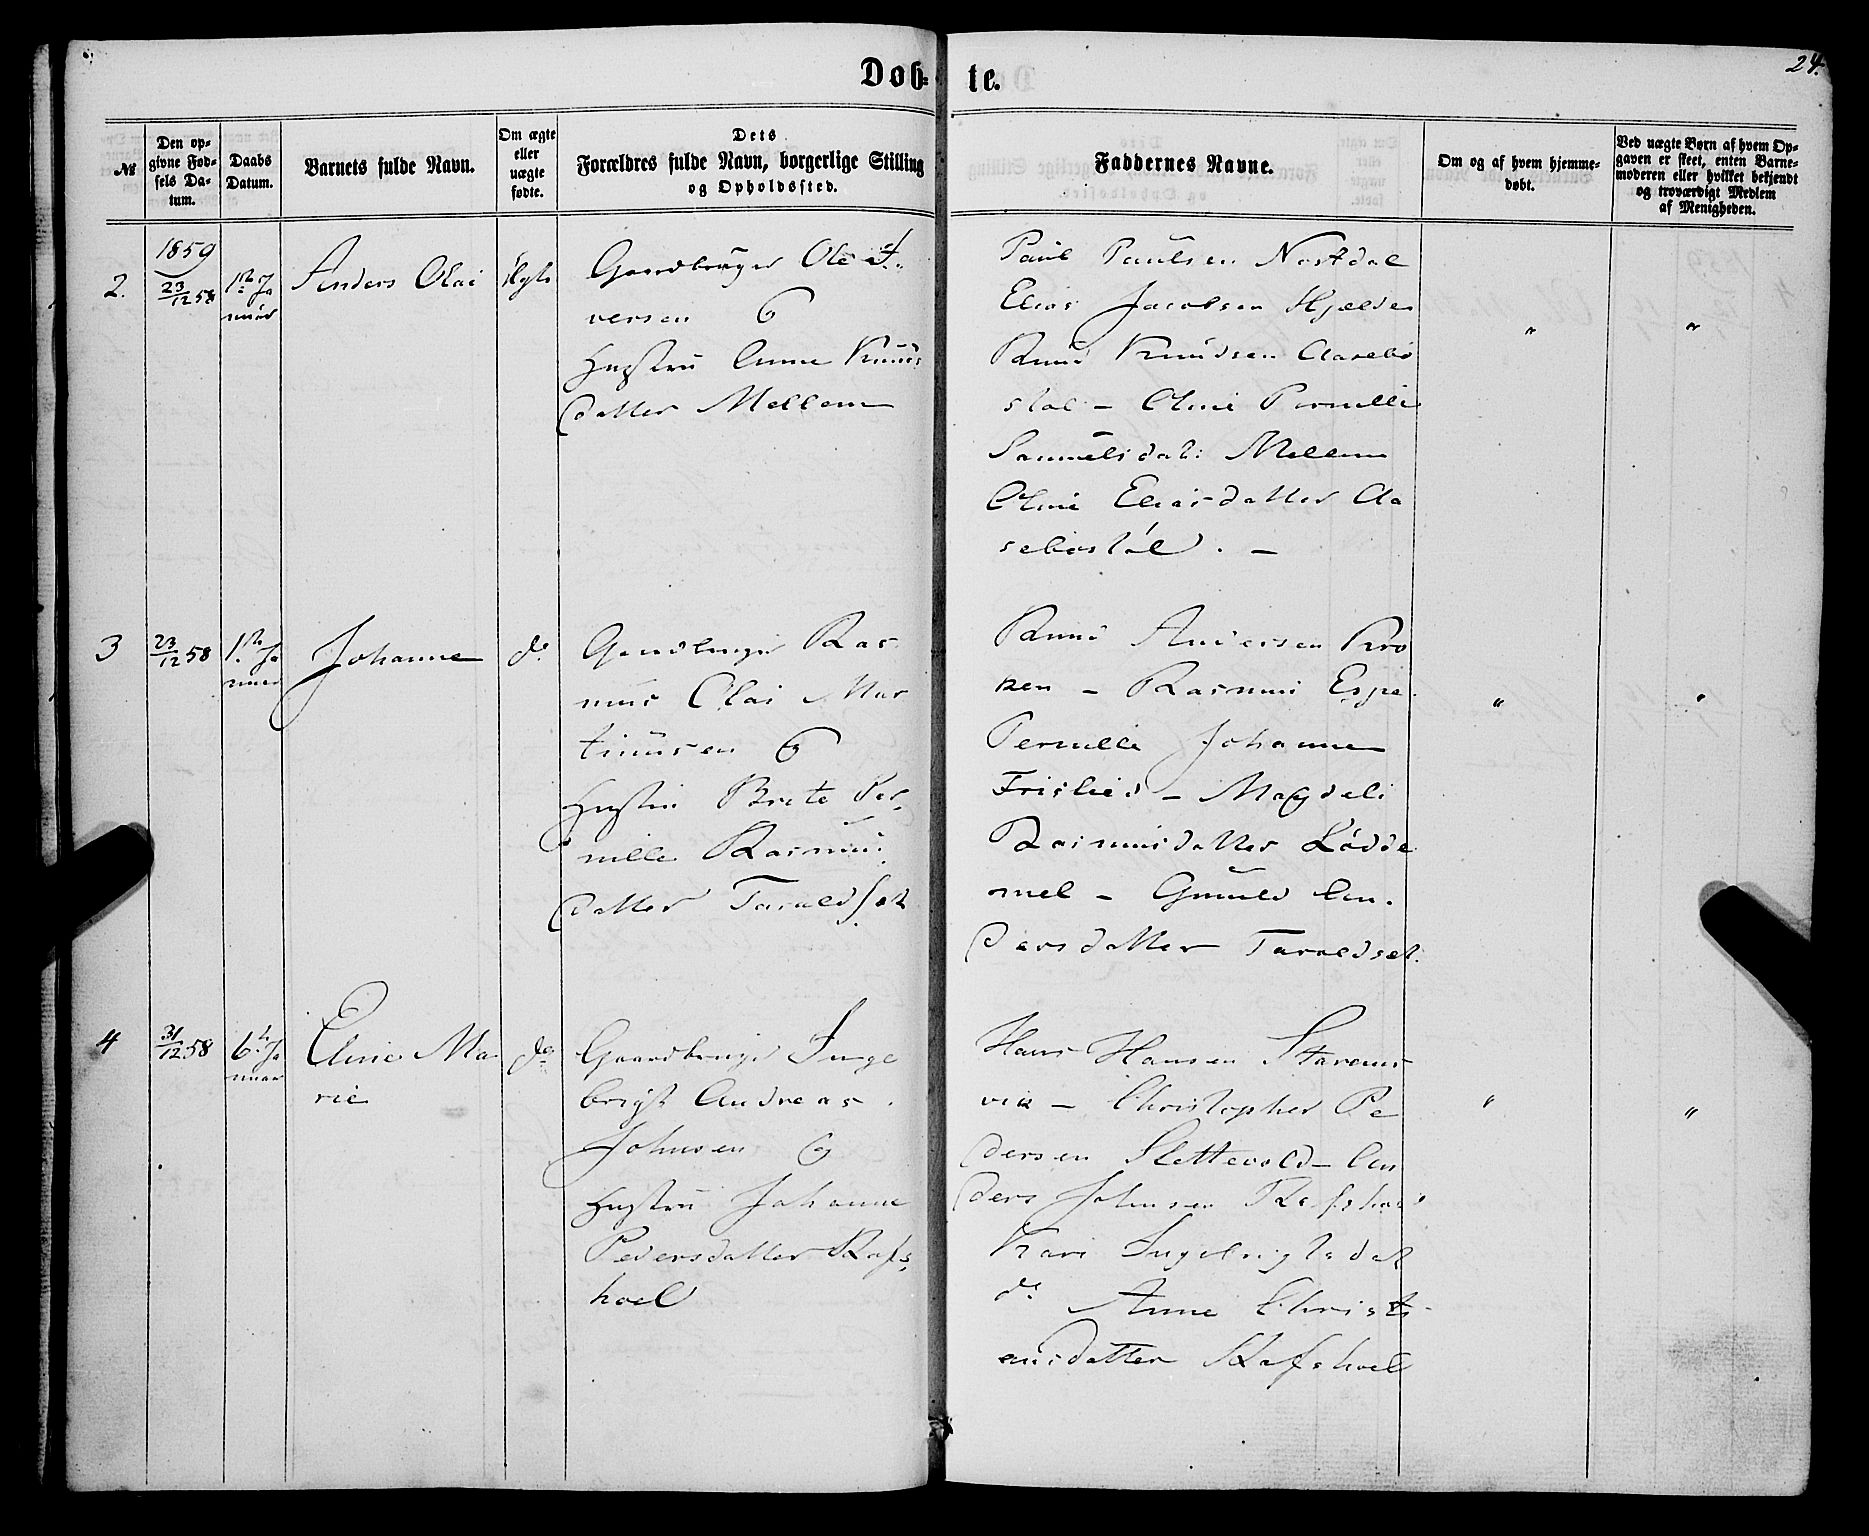 Døb-
te.
24.
№
Den op-
givne Fød-
sels Da-
tum.
Daabs
Datum.
Barnets fulde Navn.
Om ægte
eller
uægte
fødte.
Dets
Forældres fulde Navn, borgerlige Stilling
og Opholdssted.
Faddernes Navne.
Om og af hvem hjemme-
døbt.
Ved uægte Børn af hvem Op-
gaven er skeet, enten Barne-
moderen eller hvilket bekjendt
og troværdigt Medlem
af Menigheden.
1859
2.
23/12 58
1ste Ja
nuar
Anders Olai
Ægte
Gaardbruger Ole I-
versen og
Hustru Anne Knuds
datter Mellem
Paul Paulsen Nordal
Elias Jacobsen Hjelde
Knud Knudsen Aasebø
støl - Oline Pernille
Samuelsdat: Mellem
Oline Eliasdatter Aa
sebøstøl. -
"
"
3
23/12 58
1ste Ja
nuar
Johanne
do
Gaardbruger Ras
mus Olai Mar
tinusen og
Hustru Brete Per-
nille Rasmus
datter Taraldset
Knud Andersen Kro
ken - Rasmus Espe
Pernille Johanne
Frislied - Magdeli
Rasmusdatter Lødde
mel - Gunild An-
dersdatter Taraldset
"
"
4
31/12 58
6te Ja
nuar
Eline Ma
rie
do
Gaardbruger Inge
brigt Andreas
Johnsen og
Hustru Johanne
Pedersdatter Rafs-
hoel
Hans Hansen Stavens
vik - Christopher Pe
dersen Slettevold - An
ders Johnsen Rafshoel
Kari Ingebrigtsdat
do Anne Christi-
ansdatter Rafshoel
"
"